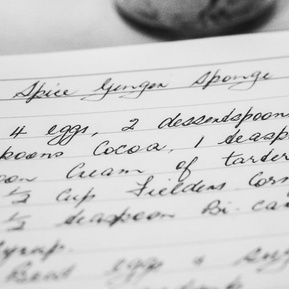 Spice Ginger Sponge
4 eggs, 2 dessertspoon
spoons Cocoa, 1 teasp
oon Cream of tarter
1/2 Cup Fielders Corn
1/2 teaspoon Bi-Ca
Syrup.
Beat eggs & sug